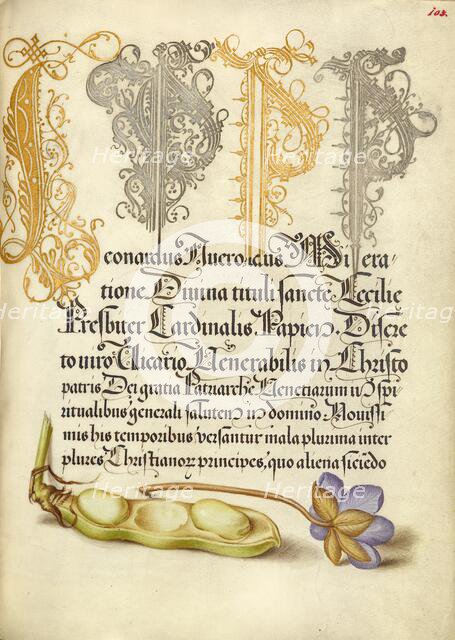 103.
L P P P
eonardus Aueroldus Misera-
tione Diuina tituli sancte Cecilie
Presbiter Cardinalis Papien. Discre
to uiro Uicario Uenerabilis in Christo
patris Dei gratia Patriarche Uenetiarum in Spi
ritualibus generali salutem in domino Nouissi
mis his temporibus uersantur mala plurima inter
plures Christianoꝝ principes, quo aliena sic
Heritage Images